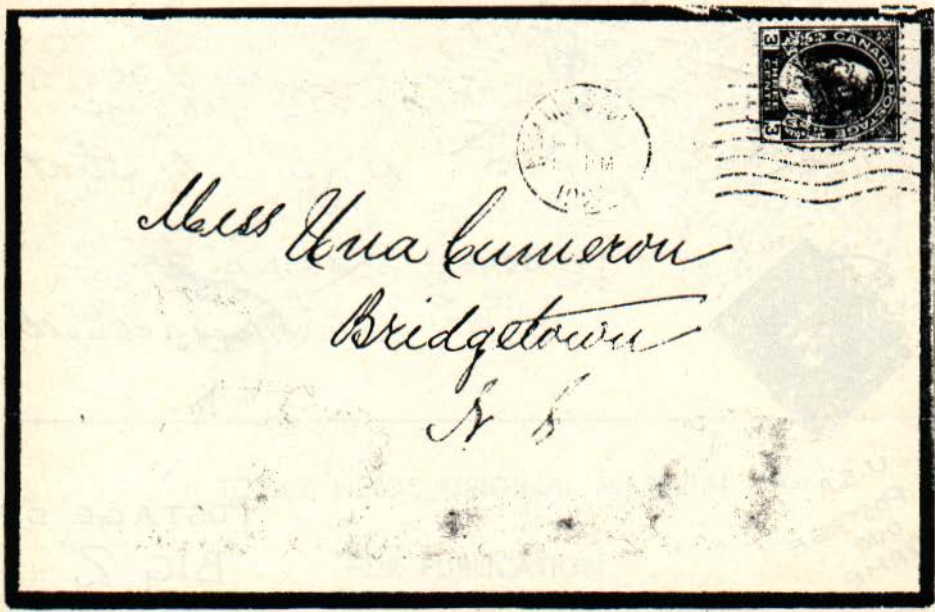 CANADA POSTAGE
3 THREE CENTS 3
PM
Miss Una Cameron
Bridgetown
N S